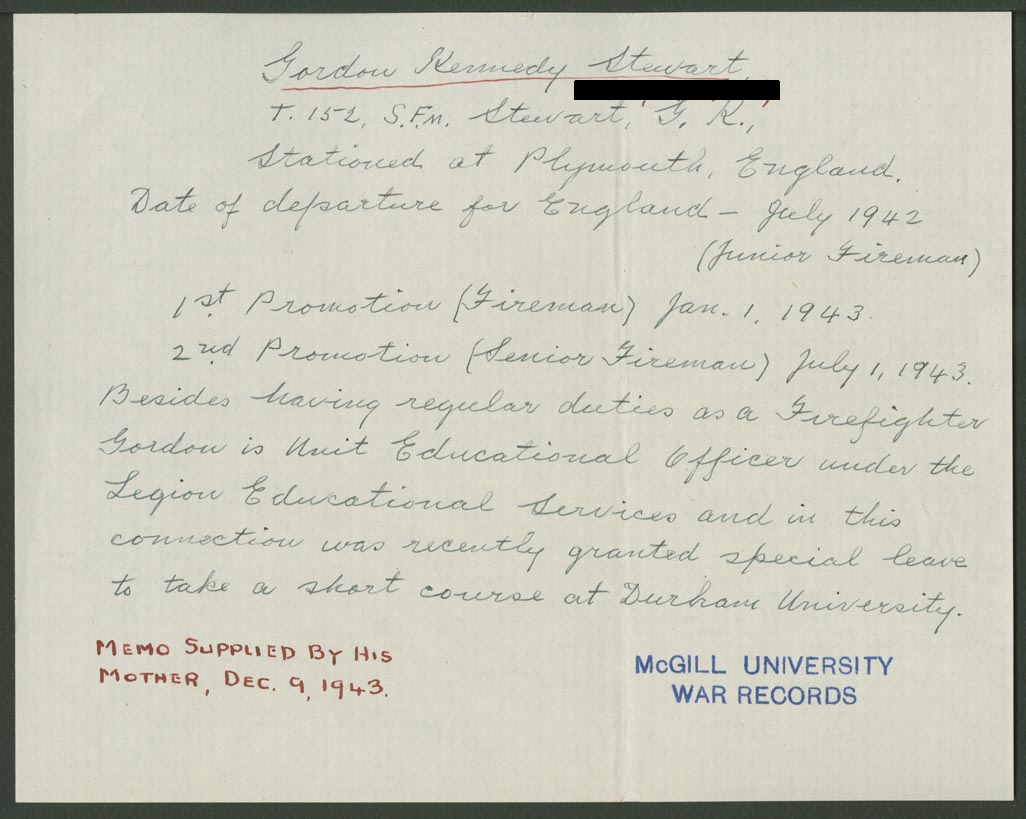 Gordon Kennedy Stewart,
T. 152, S.Fm. Stewart, G. K.,
Stationed at Plymouth, England.
Date of departure for England - July 1942
(Junior Fireman)
1st Promotion (Fireman) Jan. 1, 1943.
2nd Promotion (Senior Fireman) July 1, 1943.
Besides having regular duties as a Firefighter
Gordon is Unit Educational Officer under the
Legion Educational Services and in this
connection was recently granted special leave
to take a short course at Durham University.
MEMO SUPPLIED BY HIS
MOTHER, DEC. 9, 1943.
McGILL UNIVERSITY
WAR RECORDS